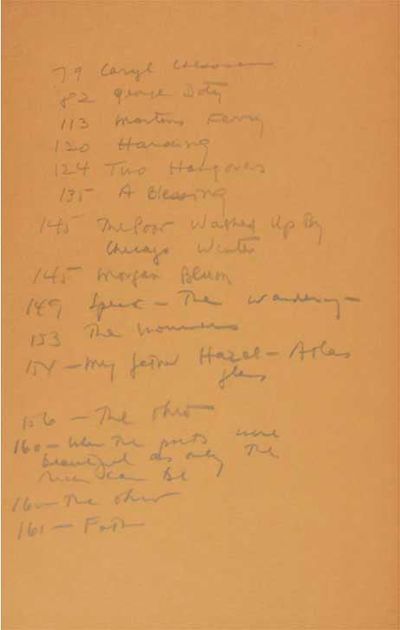 79 Caryl Chessman
82 George Doty
113 Martins Ferry
120 Harding
124 Two Hangovers
135 A Blessing
145 The Poor Washed Up By
Chicago Winter
145 Morgan Blum
149 Speak - The Wandering -
153 The
154 - My father Hazel - Atlas
glass
156 - The Ohio
160 - When the poets were
beautiful as only the
rich can be
160 - The Ohio
161 -